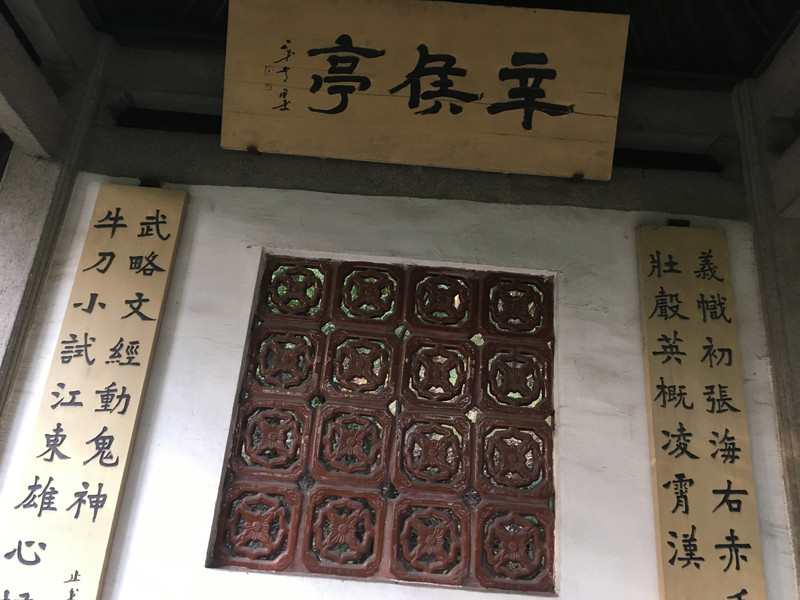 辛侯亭
義幟初張海右赤
壯聲英概凌霄漢
武略文經動鬼神
牛刀小試江東雄心